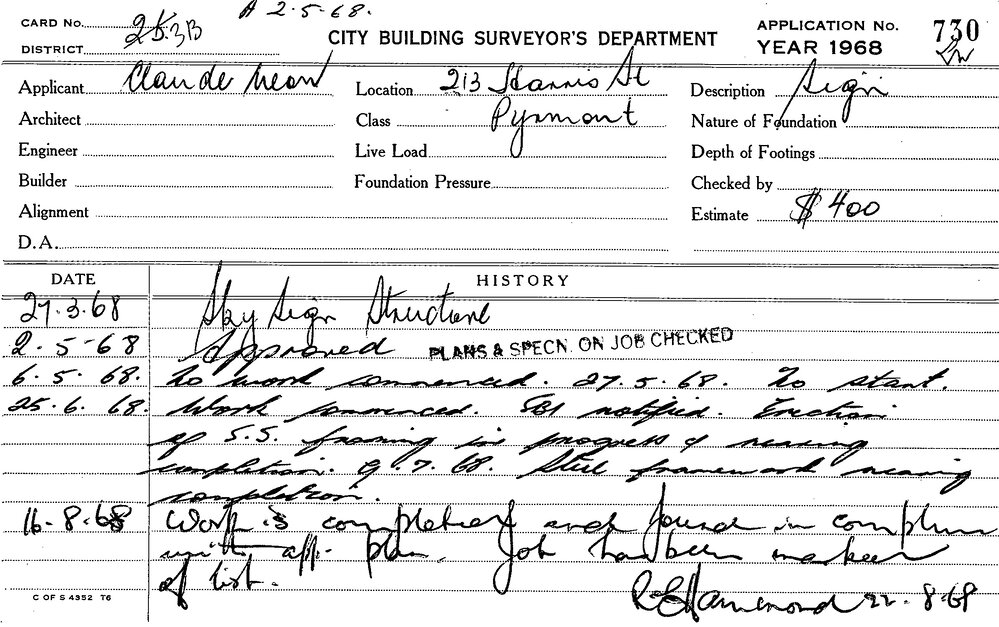 A 2.5.68.
CARD No. 25.3B
DISTRICT
CITY BUILDING SURVEYOR'S DEPARTMENT
APPLICATION No. 730
YEAR 1968
Applicant Claude Neon
Location 213 Harris St
Description Sign
Architect
Class Pyrmont
Nature of Foundation
Engineer
Live Load
Depth of Footings
Builder
Foundation Pressure
Checked by
Alignment
Estimate $400
D.A.
DATE HISTORY
27.3.68 Sky Sign Structure
2.5-68 Approved PLANS & SPECN. ON JOB CHECKED
6.5.68. No work commenced. 27.5.68. No start.
25.6.68. Work commenced. notified. Erection
of S.S. framing in progress & nearing
completion. 9.7.68. Steel framework nearing
completion.
16-8.68 Work is completed and found in complian
with app. plan. Job has been marked
of list.
R Hammond 22.8.68
C OF S 4352 T6